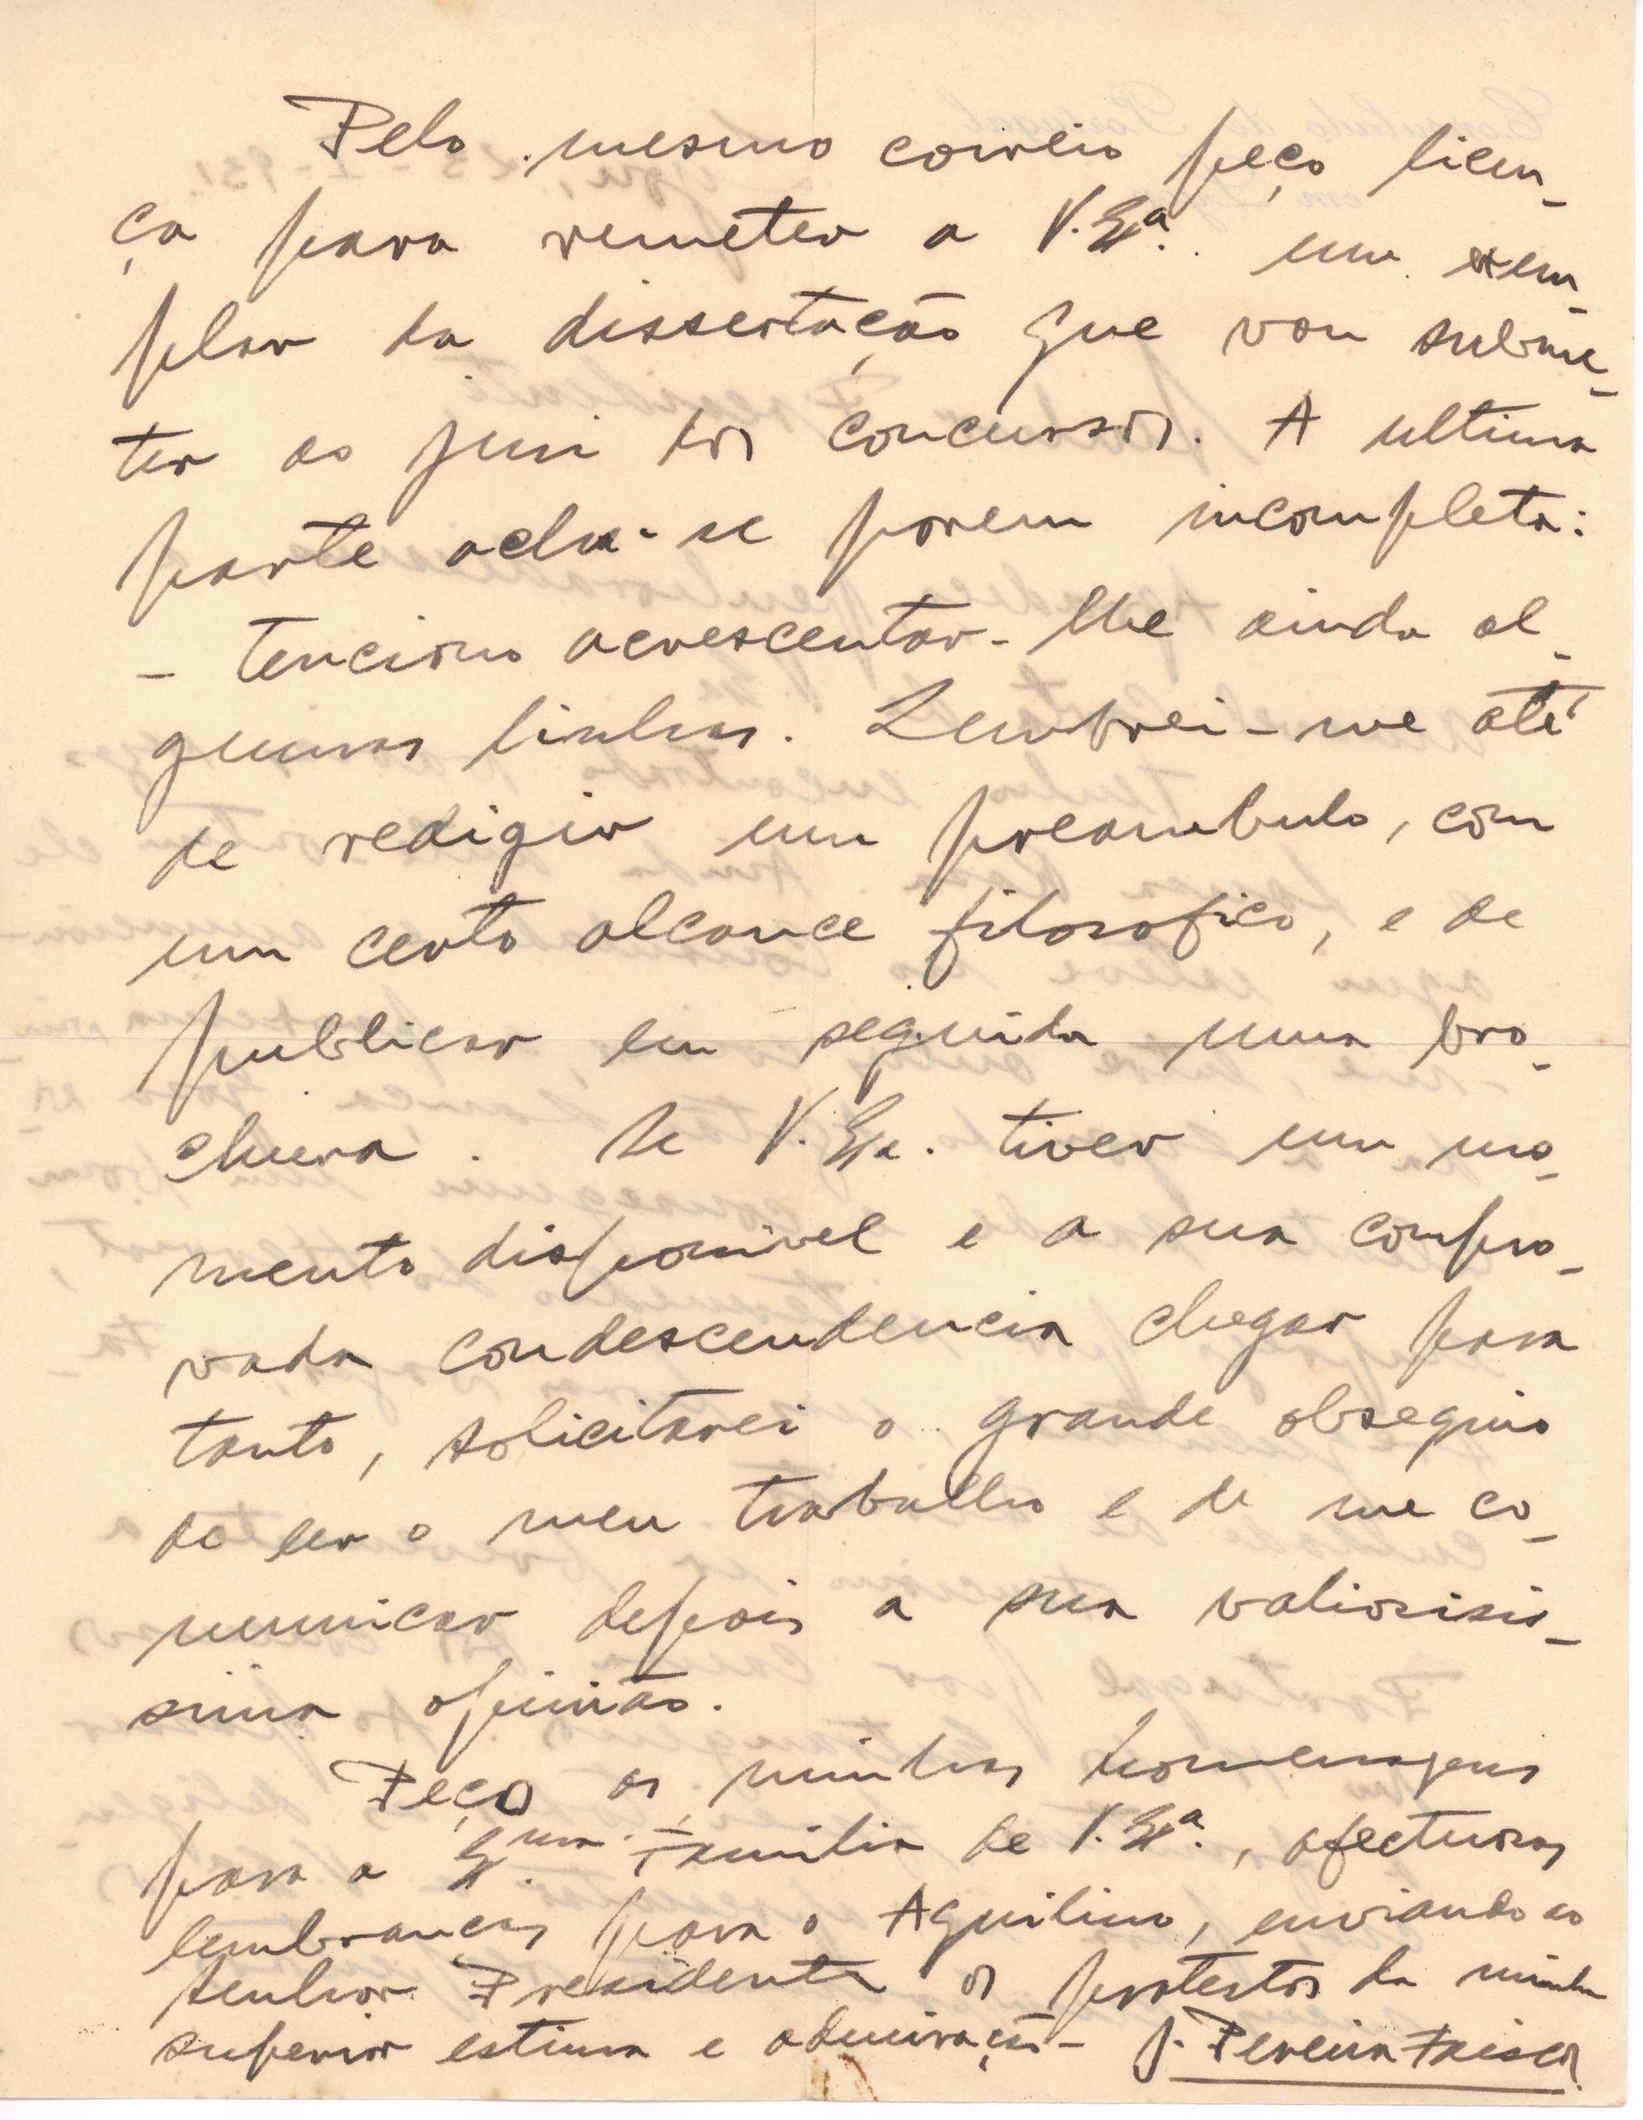 Pelo mesmo correio peço licen-
ça para remeter a V. Exª. um exem-
plar da dissertação que vou subme-
ter ao juri dos concursos. A ultima
parte acha-se porem incompleta:
- tenciono acrescentar-lhe ainda al-
gumas linhas. Lembrei-me até
de redigir um preambulo, com
um certo alcance filosofico, e de
publicar em seguida uma bro-
chura. Se V. Exa. tiver um mo-
mento disponivel e a sua compro-
vada condescendencia chegar para
tanto, solicitarei o grande obsequio
de ler o meu trabalho e de me co-
municar depois a sua valiosissi-
ssima opinião.
Peço as minhas homenagens
para a Exma. Familia de V. Exª., afectuosas
lembranças para o Aquilino, enviando ao
senhor Presidente os protestos da minha
superior estima e admiração - J. Pereira